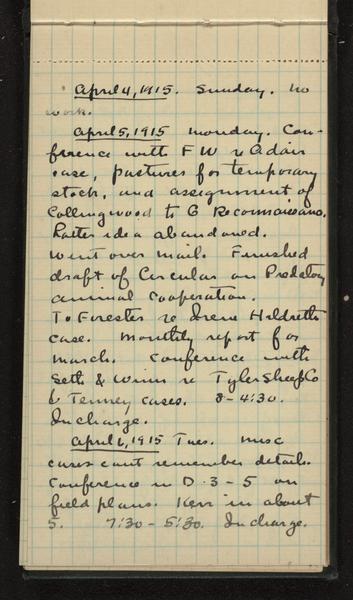 April 4, 1915. Sunday. No
work.
April 5, 1915 Monday. Con-
ference with F W re Adair
case, pastures for temporary
stock, and assignment of
Collingwood to G Reconnaissance.
Latter idea abandoned.
Went over mail. Finished
draft of Circular on Predatory
animal cooperation.
To Forester re Irene Hildreth
case. Monthly report for
March. Conference with
Seth & Winn re Tyler Sheep Co
& Tenney cases. 8-4:30.
In charge.
April 6, 1915 Tues. Misc
cases cant remember details.
Conference in D-3-5 on
field plans. Kerr in about
5. 7:30-5:30. In charge.